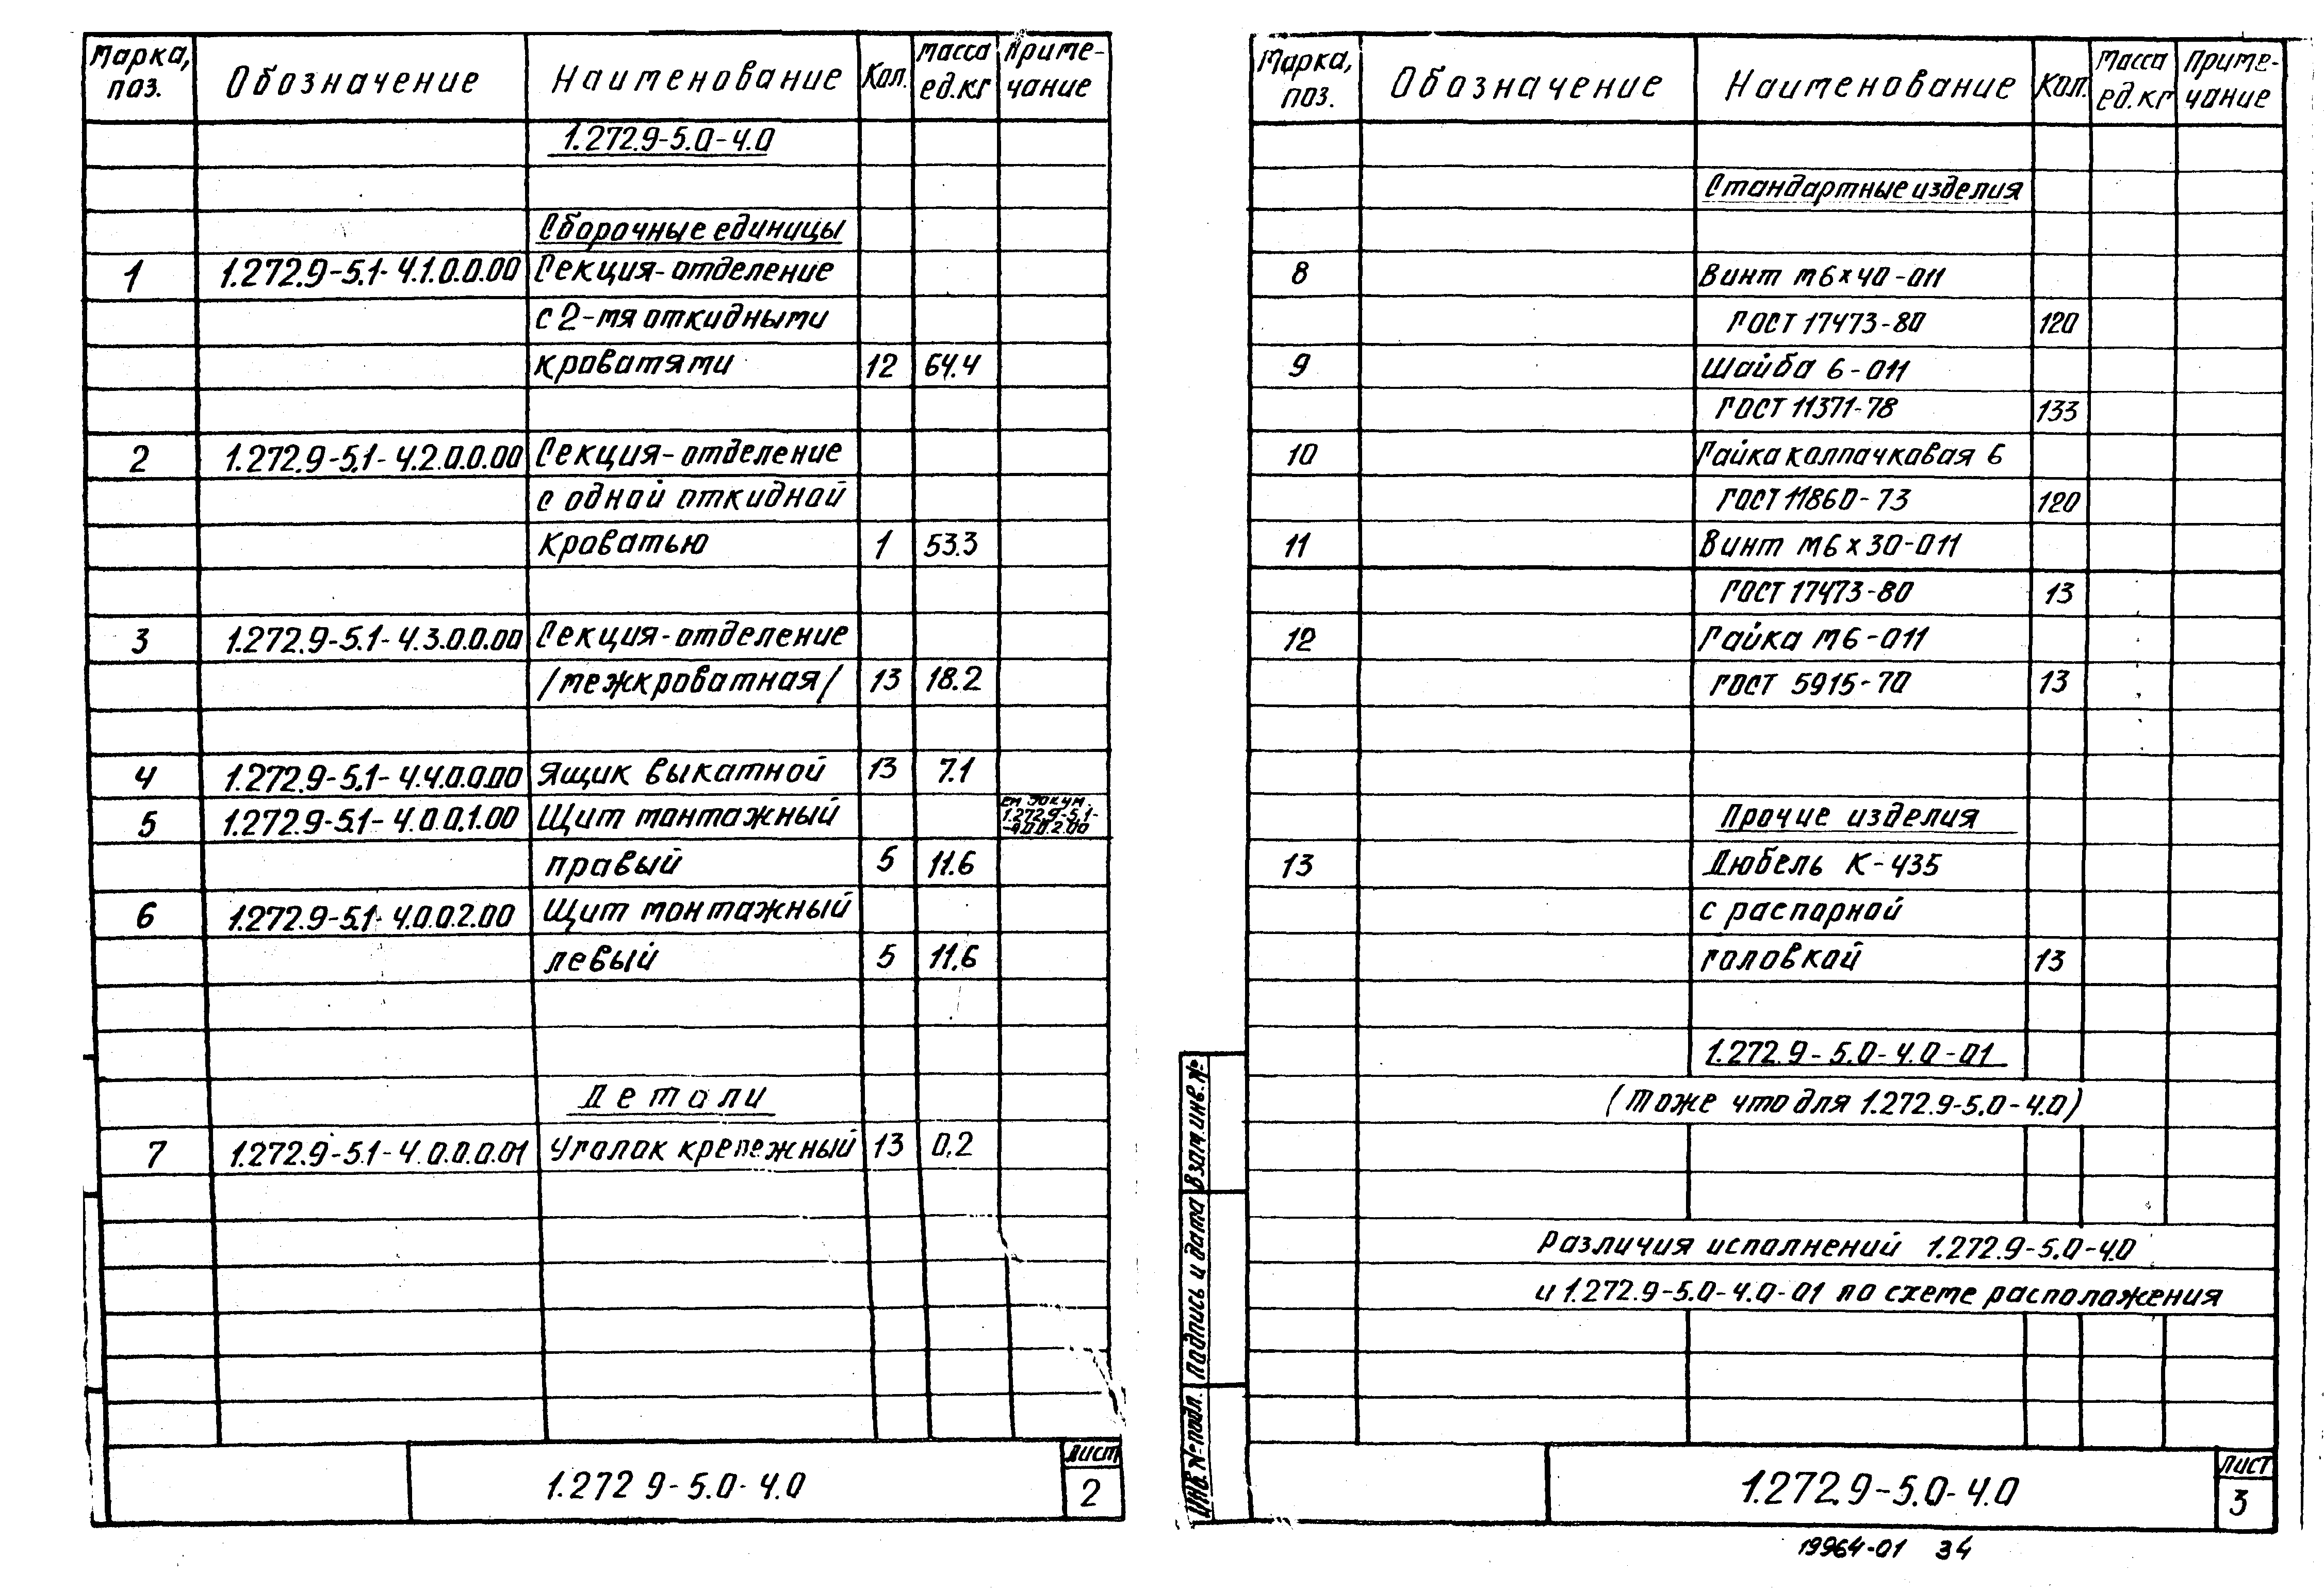 Марка, поз. Обозначение Наименование Кол. Масса ед.кг Приме-чание
1.272.9-5.0-4.0
Сборочные единицы
1 1.272.9-5.1-4.1.0.0.00 Секция-отделение
с 2-мя откидными
кроватями 12 64.4
2 1.272.9-5.1-4.2.0.0.00 Секция-отделение
с одной откидной
кроватью 1 53.3
3 1.272.9-5.1-4.3.0.0.00 Секция-отделение
/межкроватная/ 13 18.2
4 1.272.9-5.1-4.4.0.0.00 Ящик выкатной 13 7.1
5 1.272.9-5.1-4.0.0.1.00 Щит монтажный см докум. 1.272.9-5.1--4.0.0.2.00
правый 5 11.6
6 1.272.9-5.1-4.0.0.2.00 Щит монтажный
левый 5 11.6
Детали
7 1.272.9-5.1-4.0.0.0.01 Уголок крепежный 13 0.2
1.272 9-5.0-4.0
Лист
2
Марка, поз. Обозначение Наименование Кол. Масса ед.кг Приме-чание
Стандартные изделия
8 Винт М6×40-011
ГОСТ 17473-80 120
9 Шайба 6-011
ГОСТ 11371-78 133
10 Гайка колпачковая 6
ГОСТ 11860-73 120
11 Винт М6×30-011
ГОСТ 17473-80 13
12 Гайка М6-011
ГОСТ 5915-70 13
Прочие изделия
13 Дюбель К-435
с распорной
головкой 13
1.272.9-5.0-4.0-01
(Тоже что для 1.272.9-5.0-4.0)
Различия исполнений 1.272.9-5.0-4.0
и 1.272.9-5.0-4.0-01 по схеме расположения
Взам инв.№
Подпись и дата
Инв.№ подл.
1.272.9-5.0-4.0
Лист
3
19964-01 34